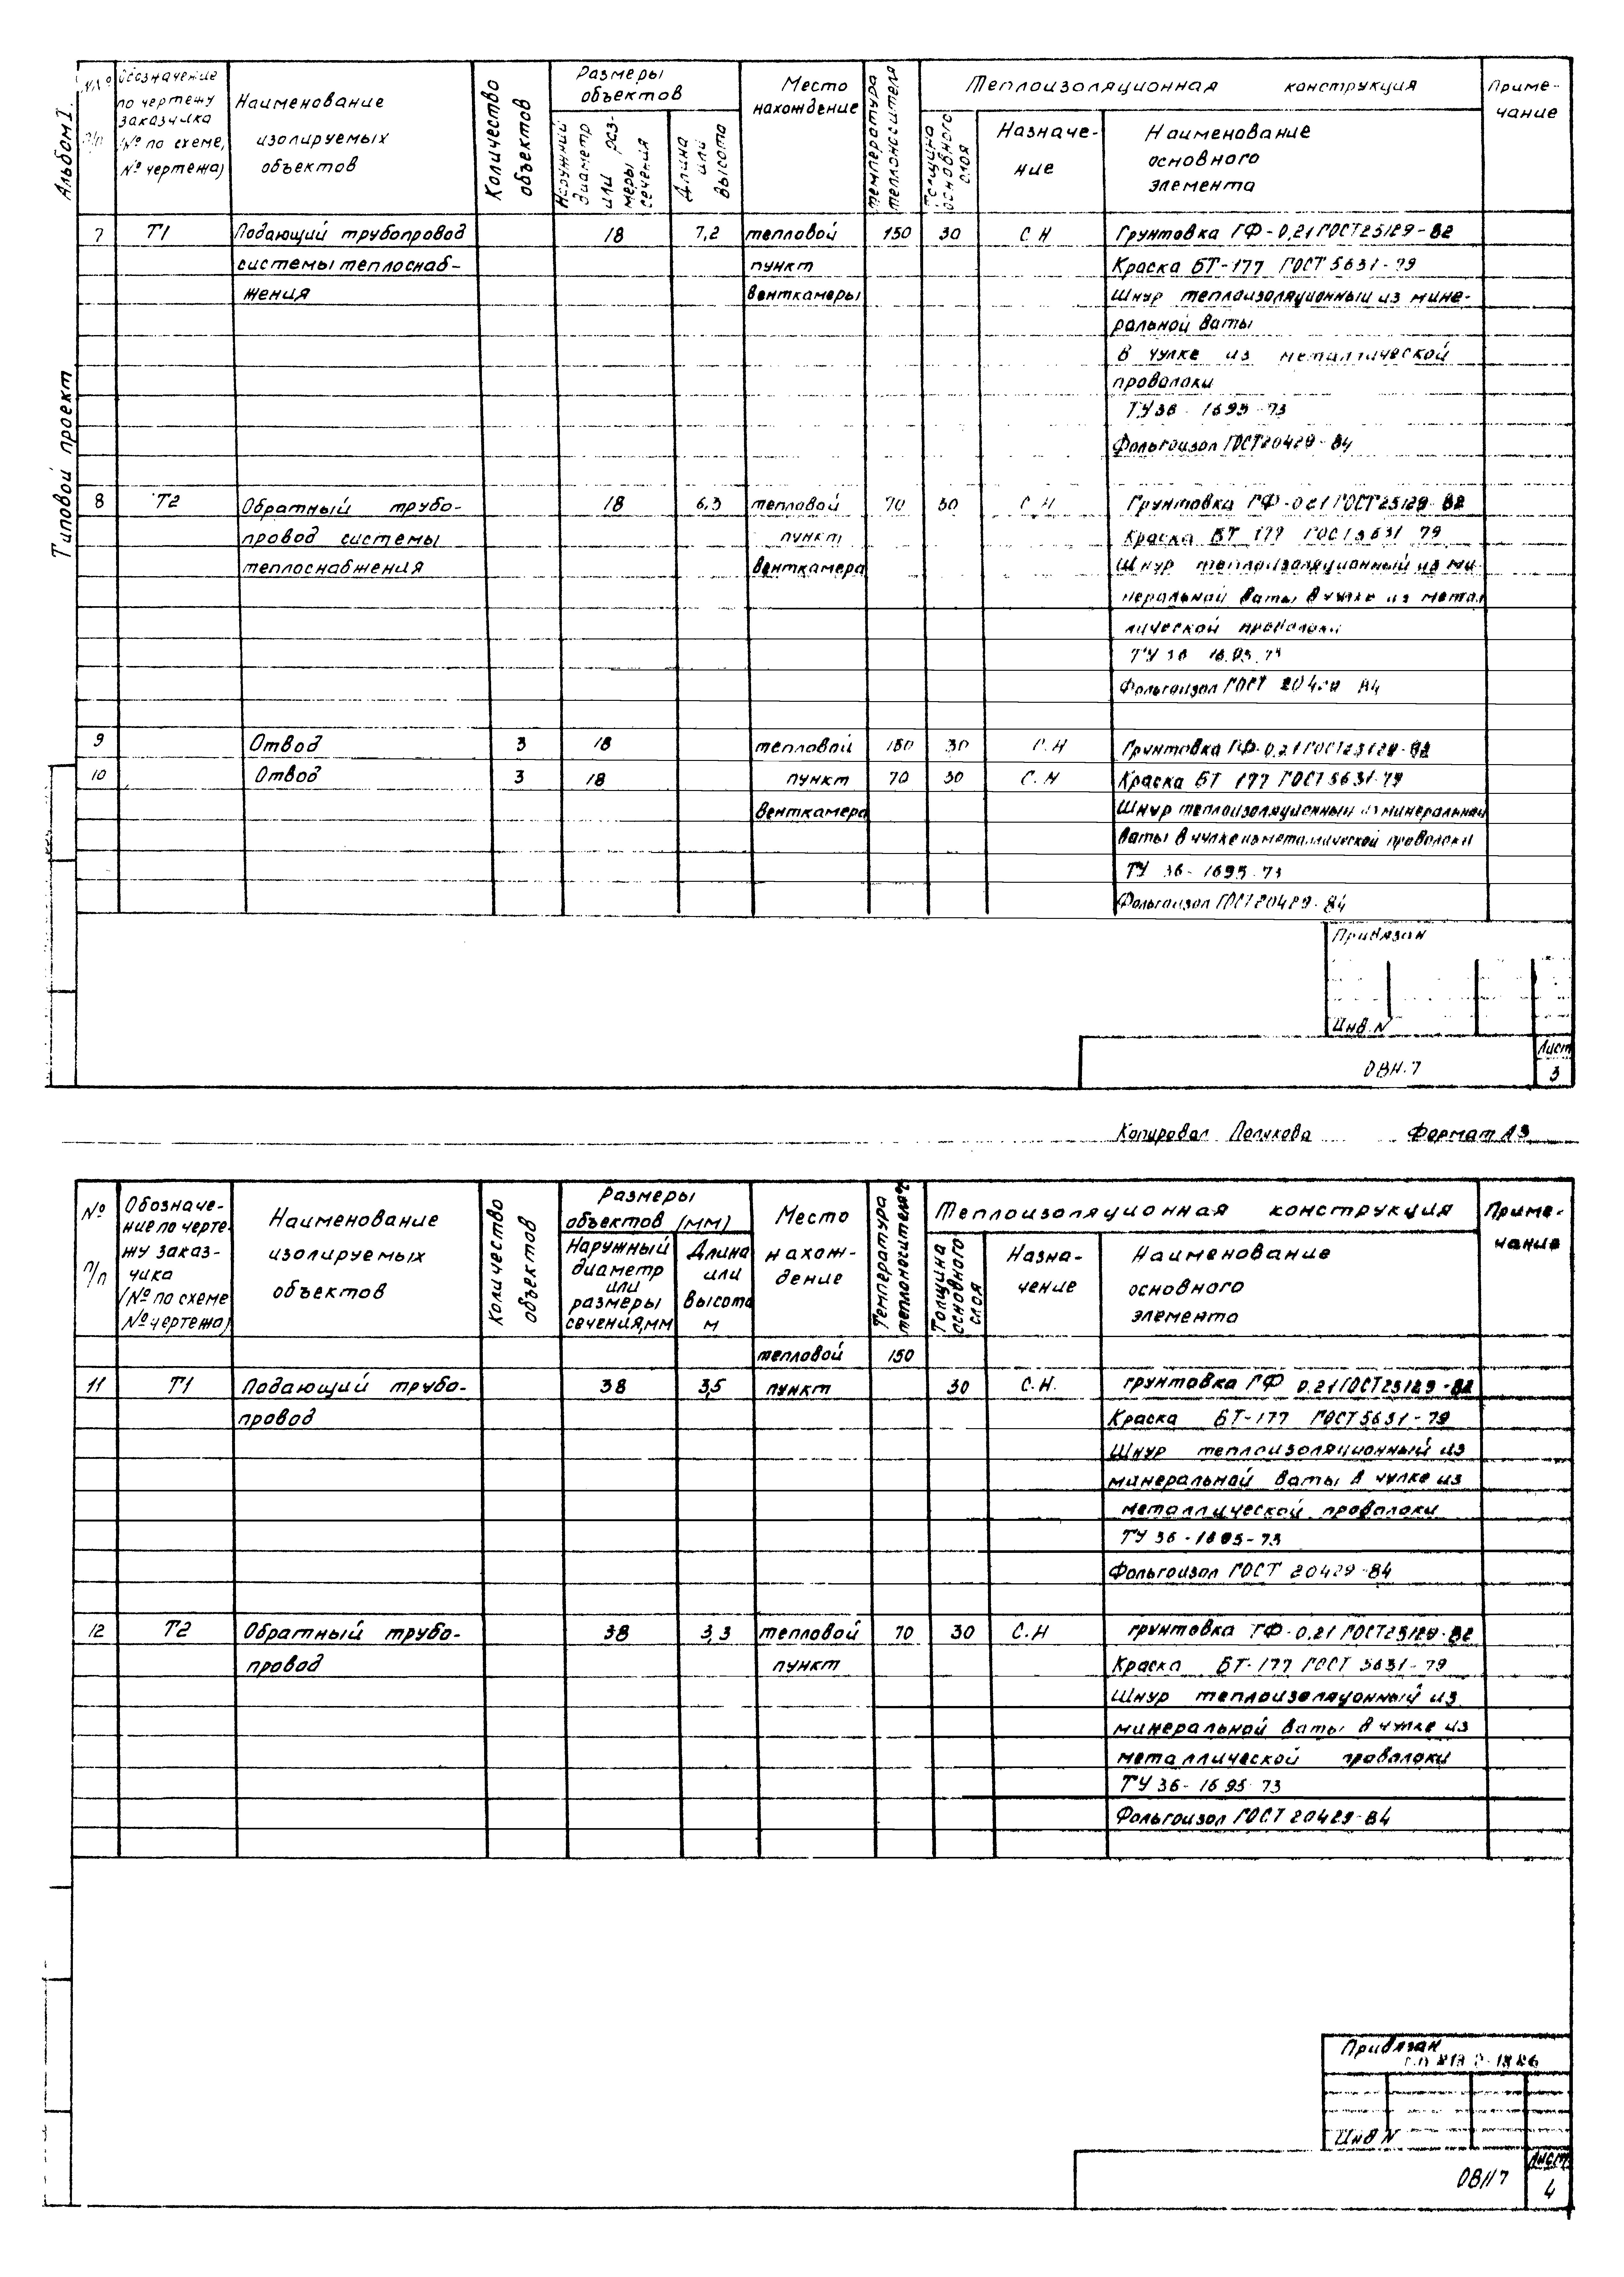 Альбом I.
Типовой проект
№ п/п
Обозначение по чертежу заказчика (№ по схеме, № чертежа)
Наименование изолируемых объектов
Количество объектов
Размеры объектов
Наружний диаметр или размеры сечения
Длина или высота
Место нахождение
температура теплоносителя
Теплоизоляционная конструкция
Толщина основного слоя
Назначе-
ние
Наименование основного элемента
Приме-
чание
7 Т1 Подающий трубопровод 18 7,2 тепловой 150 30 С.Н Грунтовка ГФ-0,21 ГОСТ 25129-82
системы теплоснаб- пункт Краска БТ-177 ГОСТ 5631-79
жения венткамеры Шнур теплоизоляционный из мине-
ральной ваты
в чулке из металлической
проволоки
ТУ 36-1695-73
Фольгоизол ГОСТ 20429-84
8 Т2 Обратный трубо- 18 6,3 тепловой 70 30 С.Н Грунтовка ГФ-021 ГОСТ 25129-82
провод системы пункт Краска БТ 177 ГОСТ 5631 79
теплоснабжения венткамера Шнур теплоизоляционный из ми-
неральной ваты в чулке из метал
лической проволоки
ТУ 36 1695.73
Фольгоизол ГОСТ 20429 84
9 Отвод 3 18 тепловой 150 30 С.Н Грунтовка ГФ-0,21 ГОСТ 25129-82
10 Отвод 3 18 пункт 70 30 С.Н Краска БТ 177 ГОСТ 5631-79
венткамера Шнур теплоизоляционный из минеральной
ваты в чулке из металлической проволоки
ТУ 36-1695-73
Фольгоизол ГОСТ 20429-84
Привязан
Инв. N
ОВН.7
Лист
3
Копировал Формат А3
№ п/п
Обозначе-
ние по черте-
жу заказ-
чика
(№ по схеме
№ чертежа)
Наименование изолируемых объектов
Количество объектов
Размеры объектов (мм)
Наружный диаметр или размеры сечения, мм
Длина или высота м
Место нахож-
дение
Температура теплоносителя °С
Теплоизоляционная конструкция
Толщина основного слоя
Назна-
чение
Наименование основного элемента
Приме-
чание
тепловой 150
11 Т1 Подающий трубо- 38 3,5 пункт 30 С.Н. грунтовка ГФ 0,21 ГОСТ 25129-82
провод Краска БТ-177 ГОСТ 5631-79
Шнур теплоизоляционный из
минеральной ваты в чулке из
металлической проволоки
ТУ 36-1695-73
Фольгоизол ГОСТ 20429-84
12 Т2 Обратный трубо- 38 3,3 тепловой 70 30 С.Н грунтовка ГФ-0.21 ГОСТ 25129-82
провод пункт Краска БТ-177 ГОСТ 5631-79
Шнур теплоизоляуонный из
минеральной ваты в чулке из
металлической проволоки
ТУ 36-1695-73
Фольгоизол ГОСТ 20429-84
Привязан
Инв N
ОВН7
Лист
4